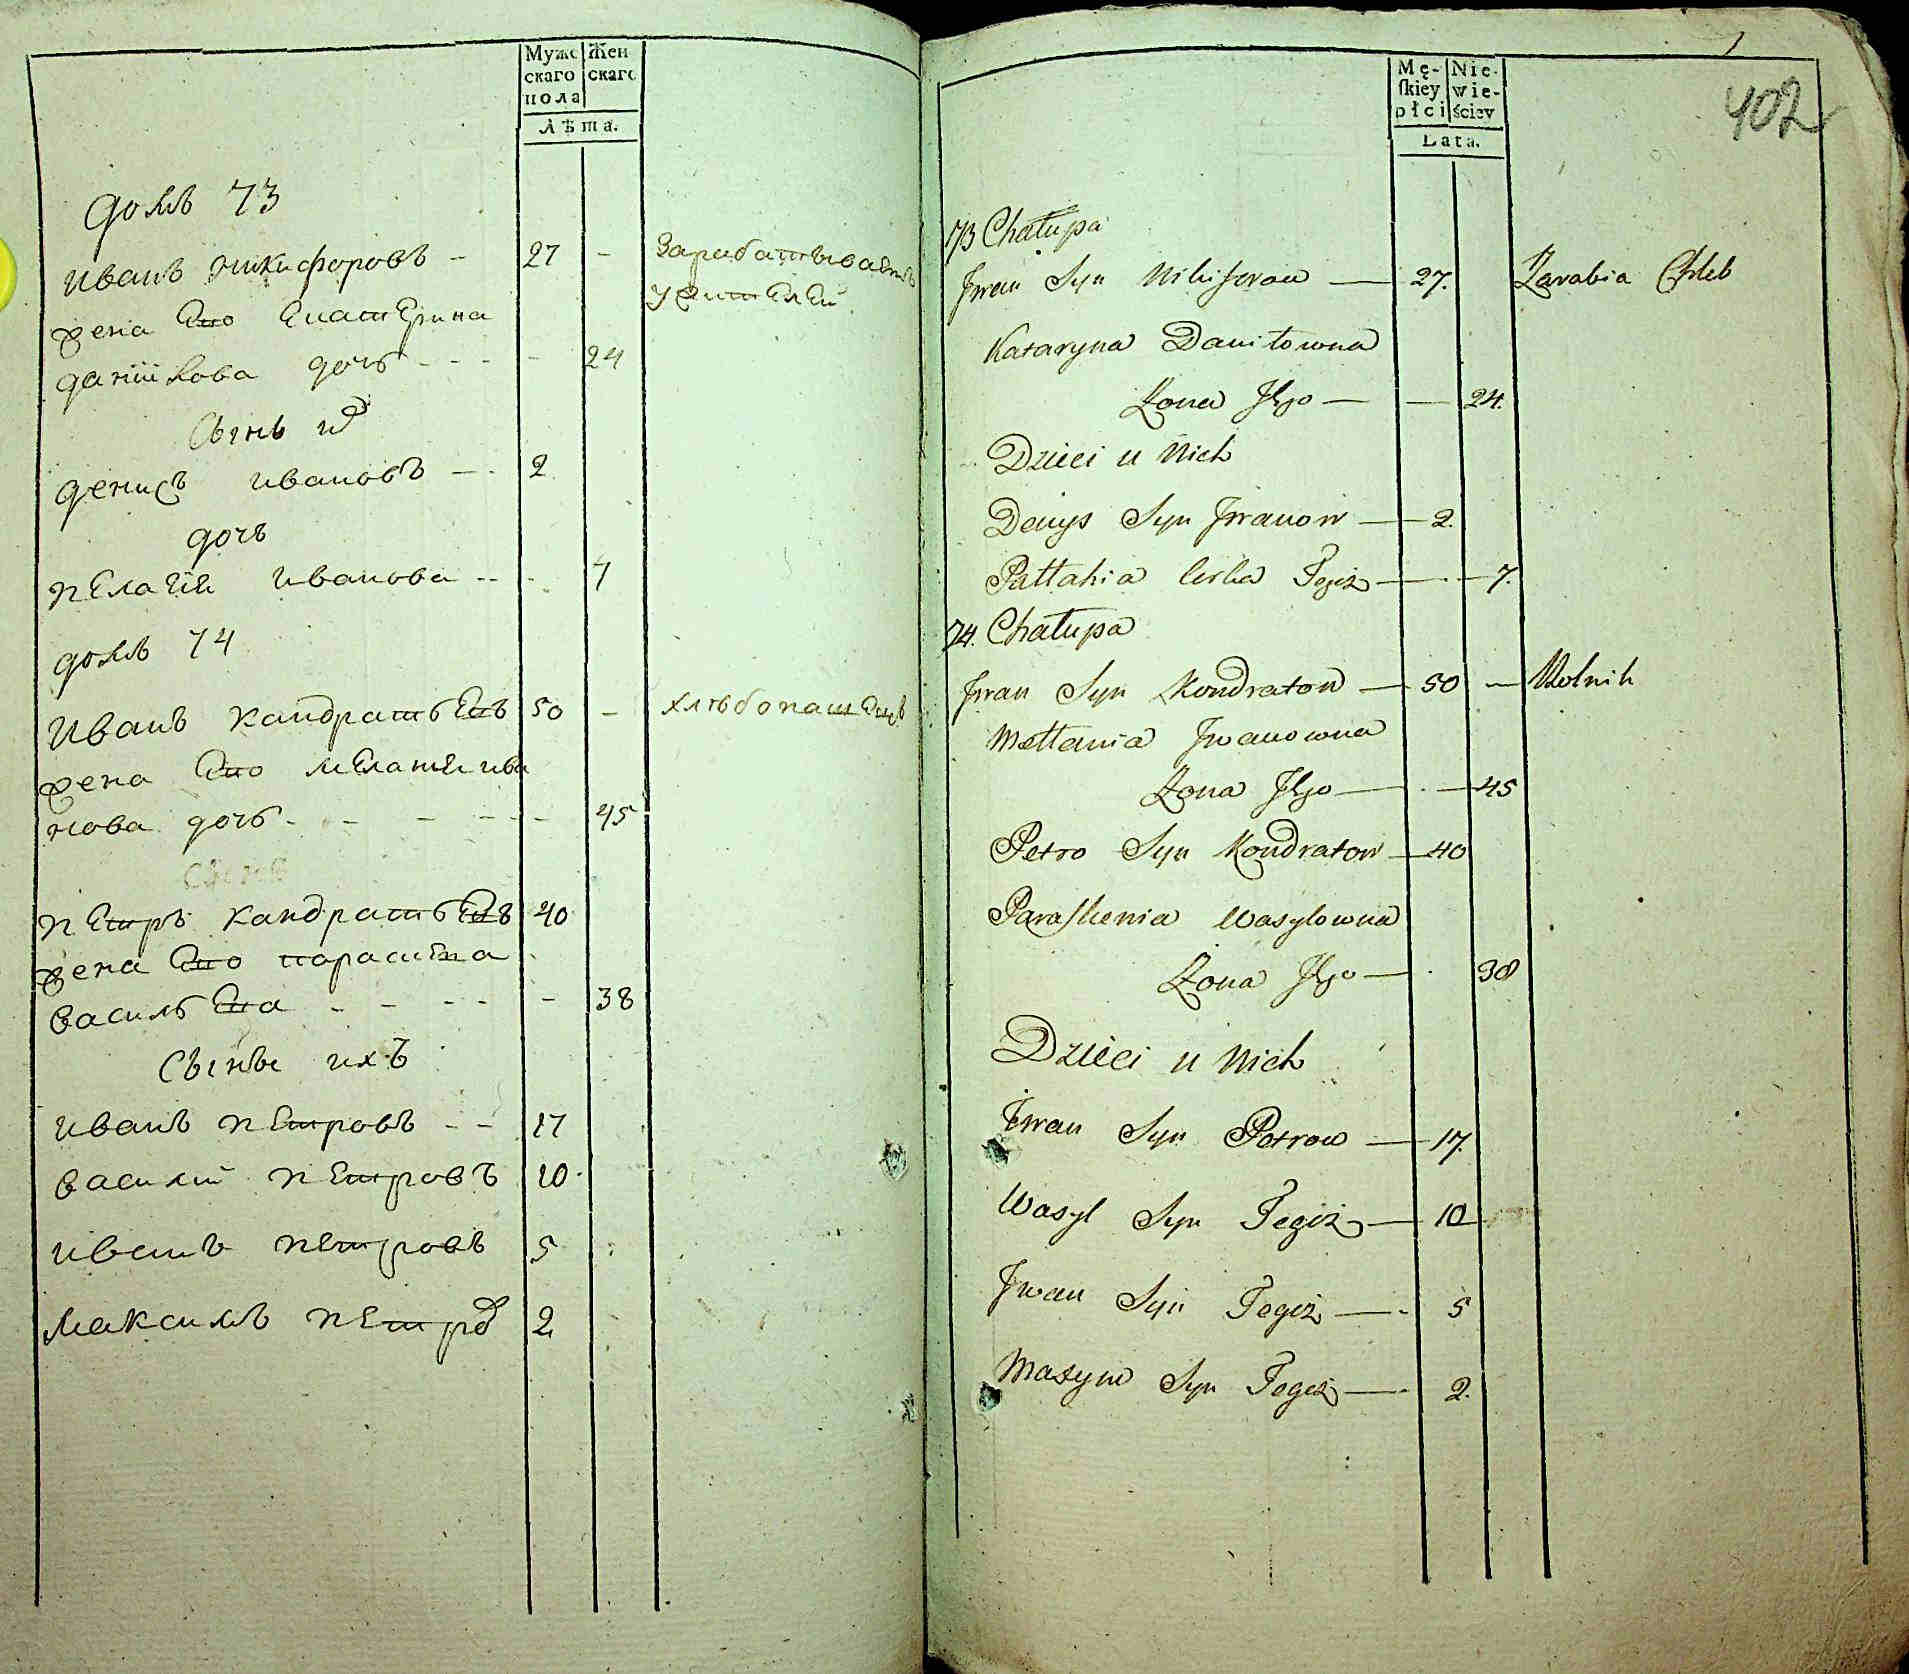 Мужс Жен
скаго скаго
пола
Лѣта.
домъ 73
иванъ никифоровъ - 27 - Зарабатываетъ
жена Ево Екатерина
данилова дочь - - - - 24
Сынъ их
денисъ ивановъ - - 2
дочъ
пелагия иванова - - - 7
домъ 74
Иванъ кандратьевъ 50 - хлѣбопашецъ
жена Ево мелания ива
нова дочь - - - - - 45
петръ кандратьевъ 40
жена Ево парасева
василева - - - - - 38
Сыны ихъ
иванъ петровъ - - 17
василий петровъ 10
иванъ петровъ 5
максимъ петров 2
402
Mę- Nie-
skiey wie-
płci ściey
Lata.
73 Chałupa
Jwan Syn Nikiforow — 27. Zarabia Chleb
Kataryna Daniłowna
Żona Jego — — 24.
Dzieci u Nich
Denys Syn Jwanow — 2.
Pałłahia Corka Tegiż — — 7.
74. Chałupa
Jwan Syn Kondratow — 50 — Rolnik
Mełłania Jwanowna
Żona Jego — — 45
Petro Syn Kondratow — 40
Paraskewia Wasylowna
Żona Jego — 38
Dzieci u Nich
Jwan Syn Petrow — 17.
Wasyl Syn Tegiż — 10
Jwan Syn Tegiż — 5
Maxym Syn Tegiż — 2.